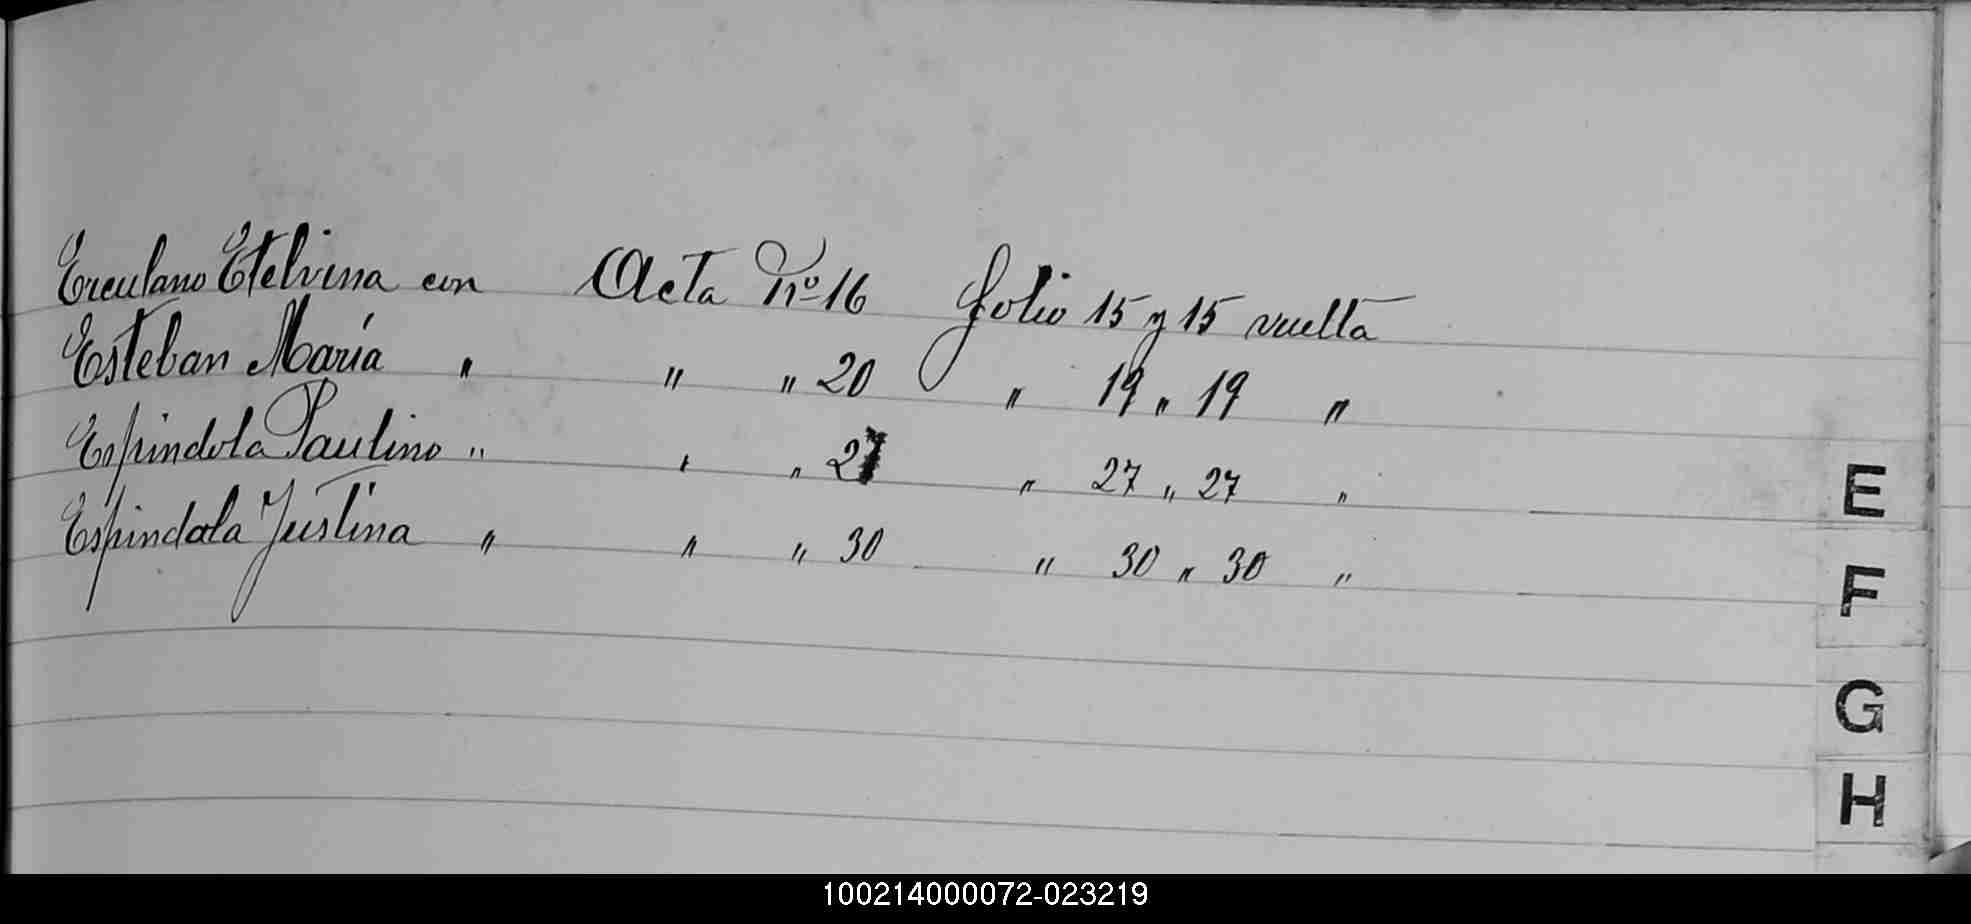 Erculano Etelvina con Acta Nº 16 folio 15 y 15 vuelta
Esteban María " " " 20 " 19 " 19 "
Espindola Paulino " " " 27 " 27 " 27 "
Espindola Justina " " " 30 " 30 " 30 "
E
F
G
H
100214000072-023219